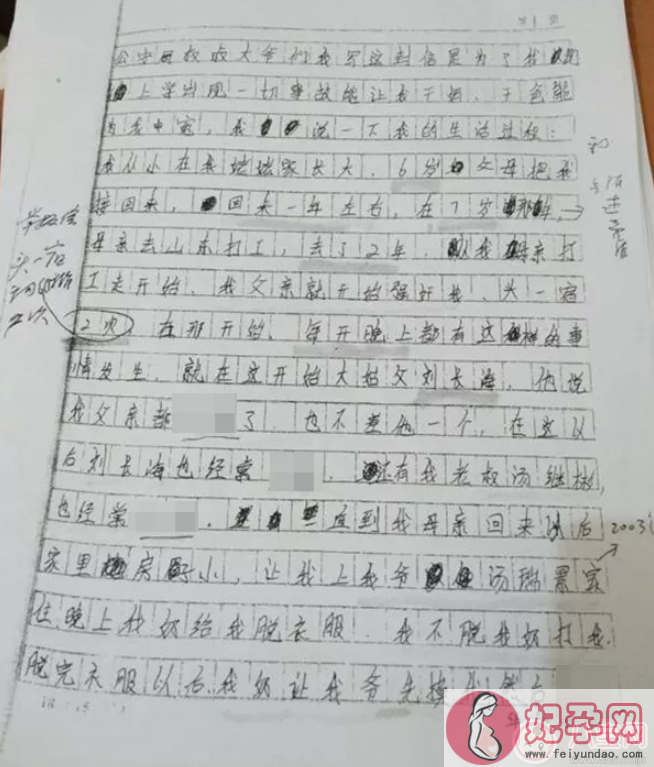 第1页
公安局叔叔大爷们我写这封信是为了我
上学出现一切事故能让我干妈、干爸能
为我申冤，我说一下我的生活过程：
我从小在我姥姥家长大，6岁父母把我
接回来，回来一年左右，在7岁那年，
母亲去山东打工，去了2年．从我母亲打
工走开始，我父亲就开始强奸我，头一宿
2次，在那开始，每天晚上都有这样的事
情发生，就在这开始大姑父刘长海，他说
我父亲都 了，也不差他一个，在这以
后刘长海也经常 ．还有我老叔汤继彬，
也经常 ．一直到我母亲回来以后
2003
家里房子小，让我上我爷汤瑞景家
住晚上我奶给我脱衣服．我不脱我奶打我．
脱完衣服以后我奶让我爷先
头一宿
2次
妃孕网
www.feiyundao.com